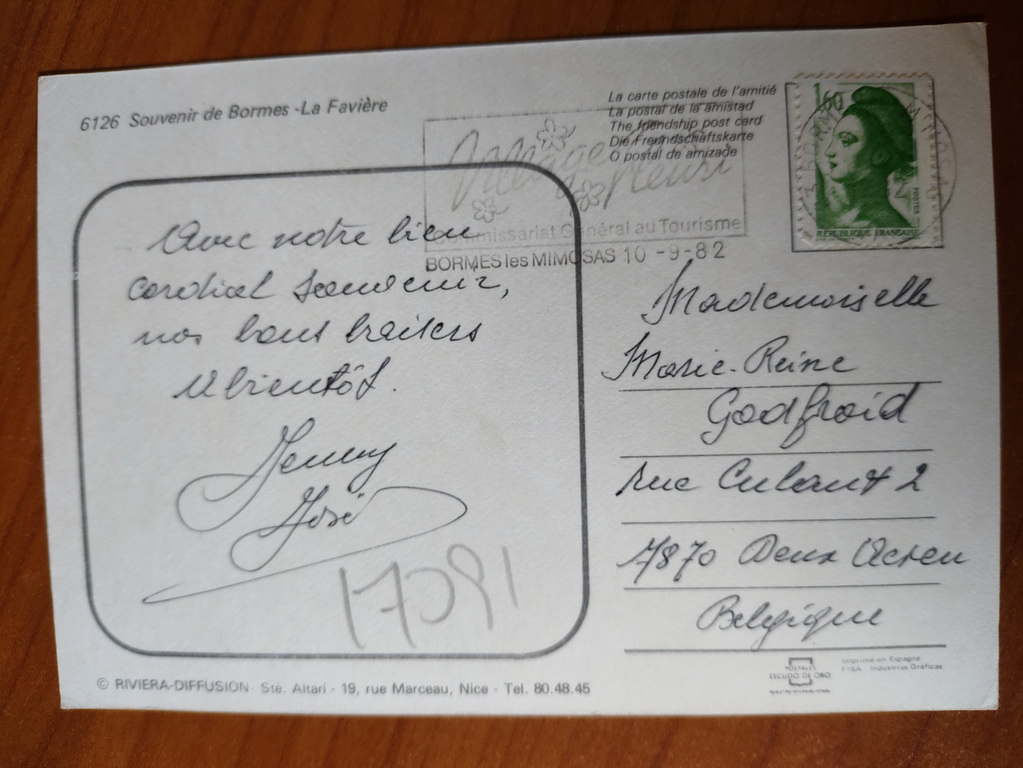 6126 Souvenir de Bormes - La Favière
La carte postale de l'amitié
La postal de la amistad
The friendship post card
Die Freundschaftskarte
O postal de amizade
1,60
POSTES
RÉPUBLIQUE FRANÇAISE
Village fleuri
Commissariat Général au Tourisme
BORMES les MIMOSAS 10 -9-82
Avec notre bien
cordial souvenir,
nos bons baisers
A bientôt.
Jenny
José
17091
Mademoiselle
Marie-Reine
Godfroid
rue Culant 2
7870 Deux Acren
Belgique
© RIVIERA-DIFFUSION - Sté. Altari - 19, rue Marceau, Nice - Tel. 80.48.45
POSTALES
ESCUDO DE ORO
Imprimé en Espagne
F.I.S.A. Industrias Gráficas